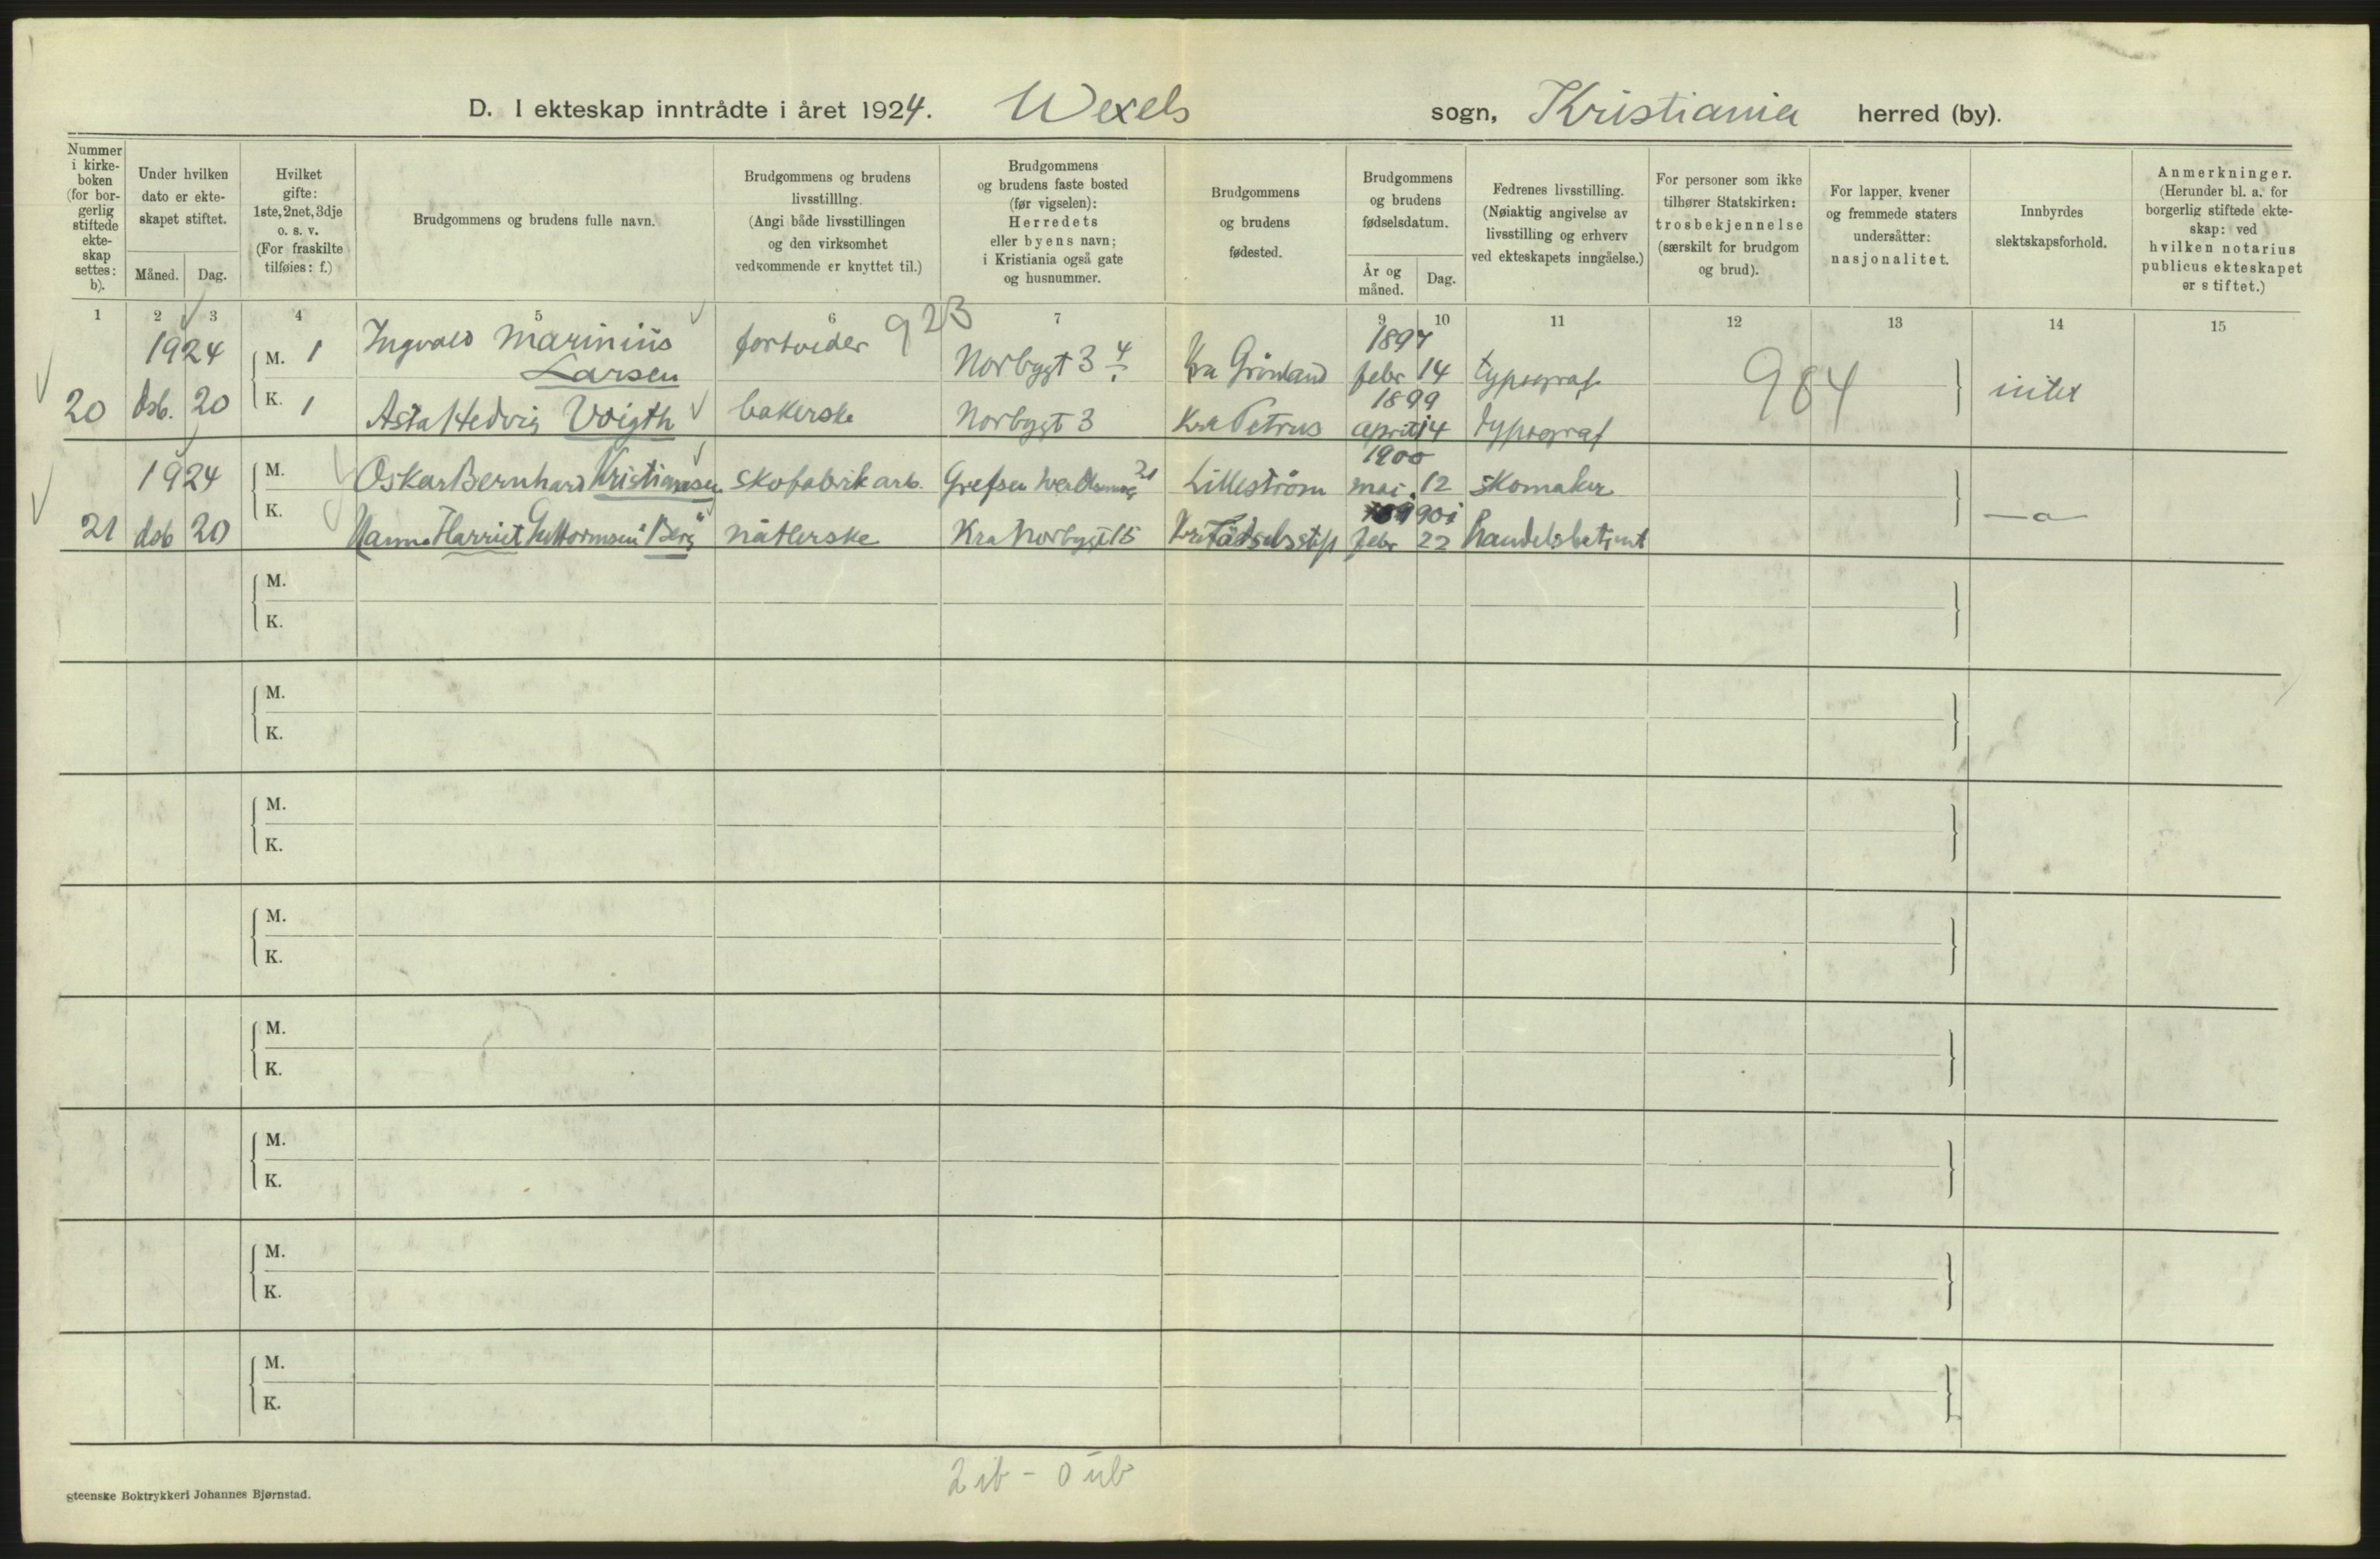 D. I ekteskap inntrådte i året 1924. Wexels sogn, Kristiania herred (by).
Nummer i kirke-boken (for bor-gerlig stiftede ekte-skap settes: b).
Under hvilken dato er ekte-skapet stiftet.
Måned. Dag.
Hvilket gifte: 1ste, 2net, 3dje o. s. v. (For fraskilte tilføies: f.)
Brudgommens og brudens fulle navn.
Brudgommens og brudens livsstilllng. (Angi både livsstillingen og den virksomhet vedkommende er knyttet til.)
Brudgommens og brudens faste bosted (før vigselen): Herredets eller byens navn; i Kristiania også gate og husnummer.
Brudgommens og brudens fødested.
Brudgommens og brudens fødselsdatum.
År og måned. Dag.
Fedrenes livsstilling. (Nøiaktig angivelse av livsstilling og erhverv ved ekteskapets inngåelse.)
For personer som ikke tilhører Statskirken: trosbekjennelse (særskilt for brudgom og brud).
For lapper, kvener og fremmede staters undersåtter: nasjonalitet.
Innbyrdes slektskapsforhold.
Anmerkninger. (Herunder bl. a. for borgerlig stiftede ekte-skap: ved hvilken notarius publicus ekteskapet er stiftet.)
1 2 3 4 5 6 7 9 10 11 12 13 14 15
923
1924 M. 1 Ingvald Marinius Larsen Norbygt 3 Kra Grönland 1897 febr 14 typograf 984
20 dsb. 20 K. 1 Asta Hedvig Voigth bakerske Norbygt 3 Kra Petrus 1899 april 14 typograf intet
1924 M. Oskar Bernhard Kristiansen skofabrikarb. Grefsen 21 Lilleström 1900 mai 12 skomaker
21 dsb 20 K. Hanna Harriet Guttormsen "Berg" nåtlerske Kra Norbygt 15 Kra Fødselsstift 1901 febr 22 handelsbetjent — a —
M.
K.
M.
K.
M.
K.
M.
K.
M.
K.
M.
K.
M.
K.
M.
K.
2 ib - 0 ub
Steenske Boktrykkeri Johannes Bjørnstad.